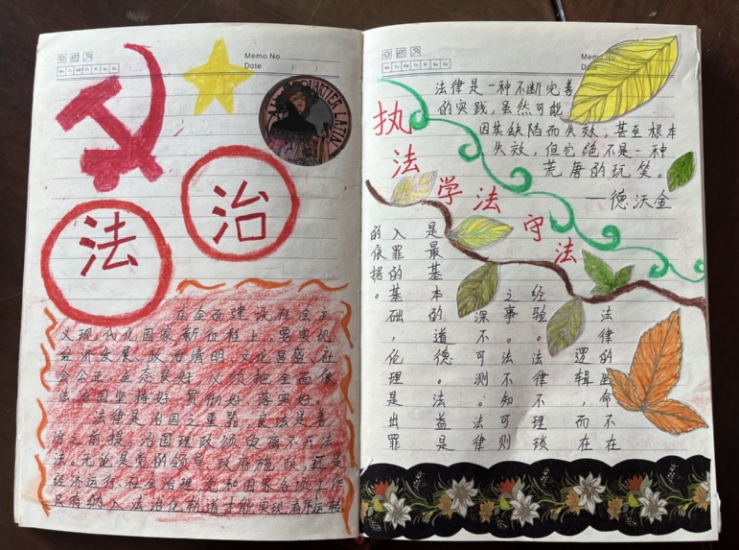 Memo No
Date
QUARTIER LATIN
法治
在全面建设社会主
义现代化国家新征程上,要实现
经济发展、政治清明、文化昌盛、社
会公正、生态良好,必须把全面依
法治国坚持好、贯彻好、落实好。
法律是治国之重器,良法是善
治之前提。治国理政须臾离不开法
法。无论是党的领导、政府施政,还是
经济运行、社会治理,党和国家各项工作
只有纳入法治化轨道才能实现有序运转
Memo No
Date
法律是一种不断完善
的实践,虽然可能
因其缺陷而失效,甚至根本
失效,但它绝不是一种
荒唐的玩笑。
——德沃金
执法
学法
守法
法律的生命不在
逻辑,而在
经验。法律,理琐
之事。法不知可则
深不可测。法律
是最基本的道德。法益是
入罪的基础,伦理是出罪
的依据。